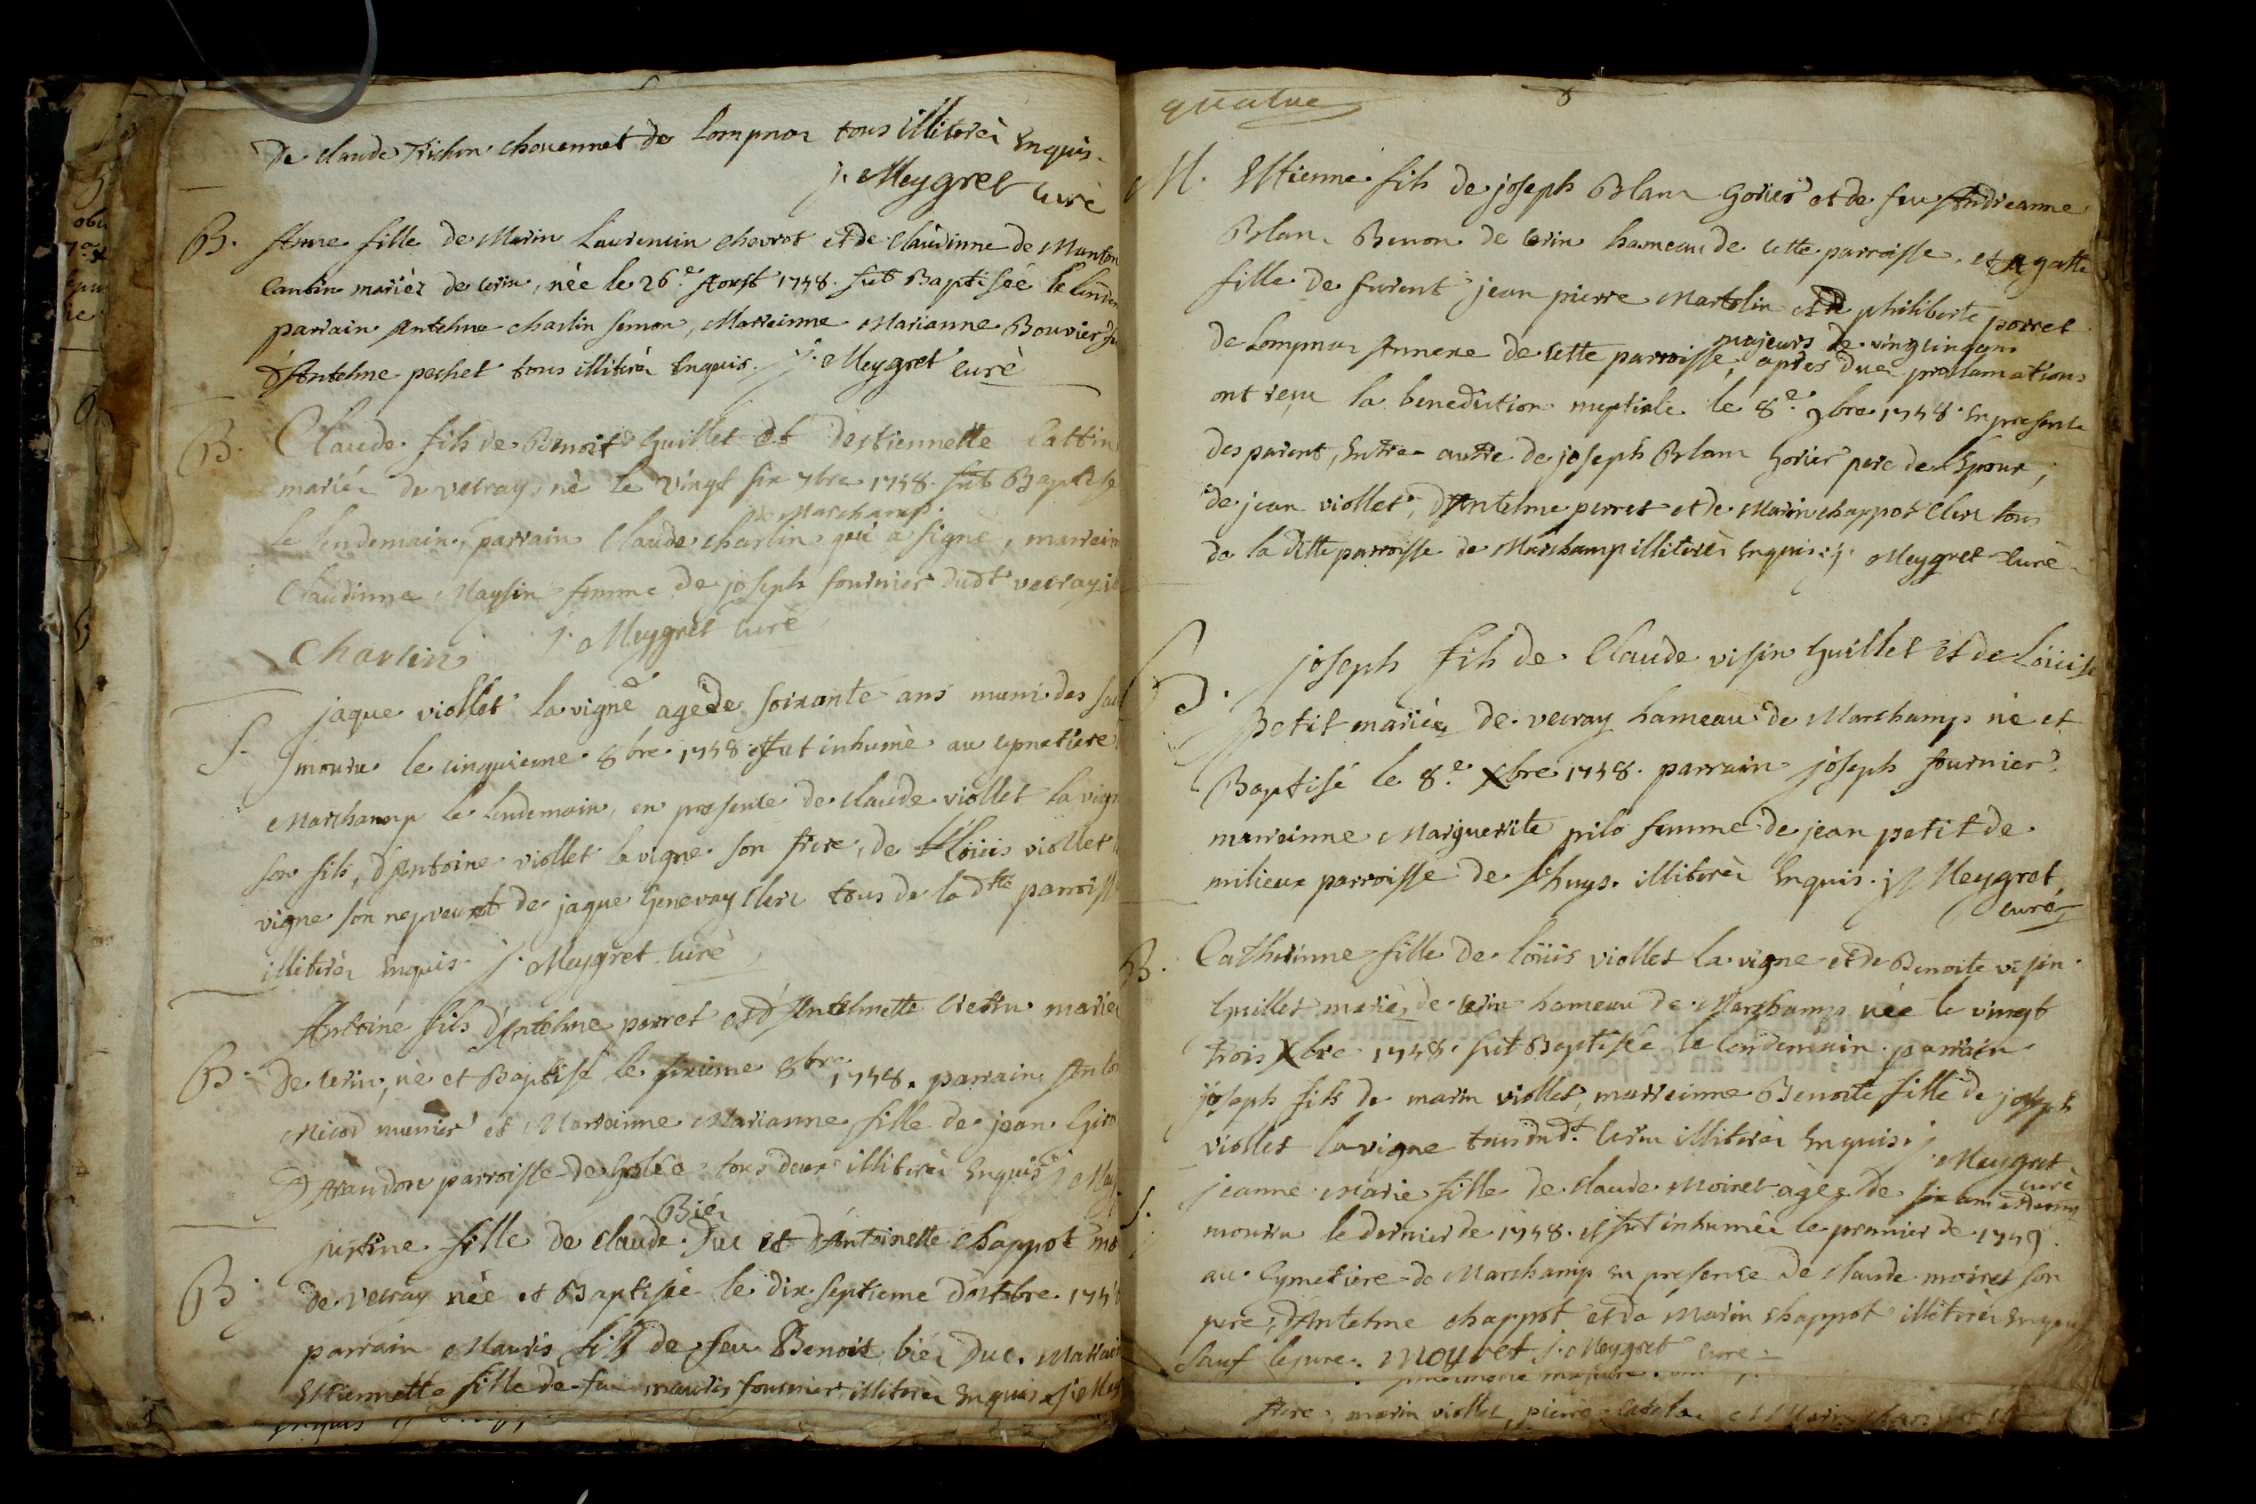 De claude Trichon chouennet de Lompnaz tous illiterés Enquis.
j. Meygret curé
B. Anne fille de Marin Laurencin chevrot et de claudinne de Manton
Cantin mariés de cerin, née le 26.e Aoust 1758. fut Baptisée le lendem
parrain Antelme charlin simon, Marreinne Marianne Bouvier
d'Antelme pochet tous illiterés Enquis. j. Meygret curé
B. Claude fils de Benoit Guillet et destiennette Cattin
mariés de vecray, né le vingt six 7bre 1758. fut Baptisé
de Marchamp.
le lendemain, parrain Claude charlin qui a signé, marrein
Claudinne Maysin femme de joseph fournier dudt vecray
Charlin j. Meygret curé
S. jaque viollet la vigne agé de soixante ans muni des sac
mouru le cinquieme 8bre 1758 et fut inhumé au cymetiere
Marchamp le lendemain, en presence de claude viollet la vign
son fils, d'Antoine viollet la vigne son frere, de Loüis viollet
vigne son nepveu et de jaque Genevay clerc tous de la dtte parroiss
illiterés Enquis. j. Meygret curé
Antoine fils d'Antelme perret et d'Antelmette mariés
B. De cerin, né et Baptisé le sixieme 8bre 1758. parrain Anto
Micod munier et Marreinne Marianne fille de jean
D'Arandon parroisse de tous deux illiterés Enquis j Mey
Biés
justine fille de claude Duc et d'Antoinette chappot ma
B. de vecray née et Baptisée le dix septieme d'octobre 175
parrain Mauris fils de feu Benoit biés Duc. Marrein
Estiennette fille de feu mauris fournier illiterés Enquis j Mey
Enquis
quatre
M. Estienne fils de joseph Blanc Gorier et de feu Andreanne
Blanc Benon de cerin hameau de cette parroisse. et Agatte
fille de furent jean pierre Martelin et de philiberte perret
majeurs de vingcinq ans
de Lompnaz Annexe de cette parroisse, apres dues proclamations
ont reçu la benediction nuptiale le 8.e 9bre 1758. en presence
des parent, Entre autre de joseph Blanc Gorier pere de l'Epoux,
de jean viollet, d'Antelme perret et de Marin chappot clerc tous
de la ditte parroisse de Marchamp illiterés Enquis. j. Meygret curé
B. joseph fils de Claude visin Guillet et de Loüise
Petit mariés de vecray hameau de Marchamp né et
Baptisé le 8.e Xbre 1758. parrain joseph fournier
marreinne Marguerite pilo femme de jean petit de
milieux parroisse de Lhuys. illiterés Enquis. j Meygret
curé
B. Catherinne fille de loüis viollet la vigne et de Benoite visin
Guillet mariés de cerin hameau de Marchamp née le vingt
trois Xbre 1758. fut Baptisée le lendemain. parrain
joseph fils de marin viollet, marreinne Benoite fille de joseph
viollet la vigne tous dudt. cerin illiterés Enquis. j. Meygret
curé
S. jeanne Marie fille de claude Moiret agée de six ans et demy
mouru le dernier de 1758. et fut inhumée le premier de 1759.
au Cymetiere de Marchamp en presence de claude moiret son
pere, d'Antelme chappot et de Marin chappot illiterés Enquis
Sauf le pere. Moyret j. Meygret curé
frere, marin viollet, pierre et Marin